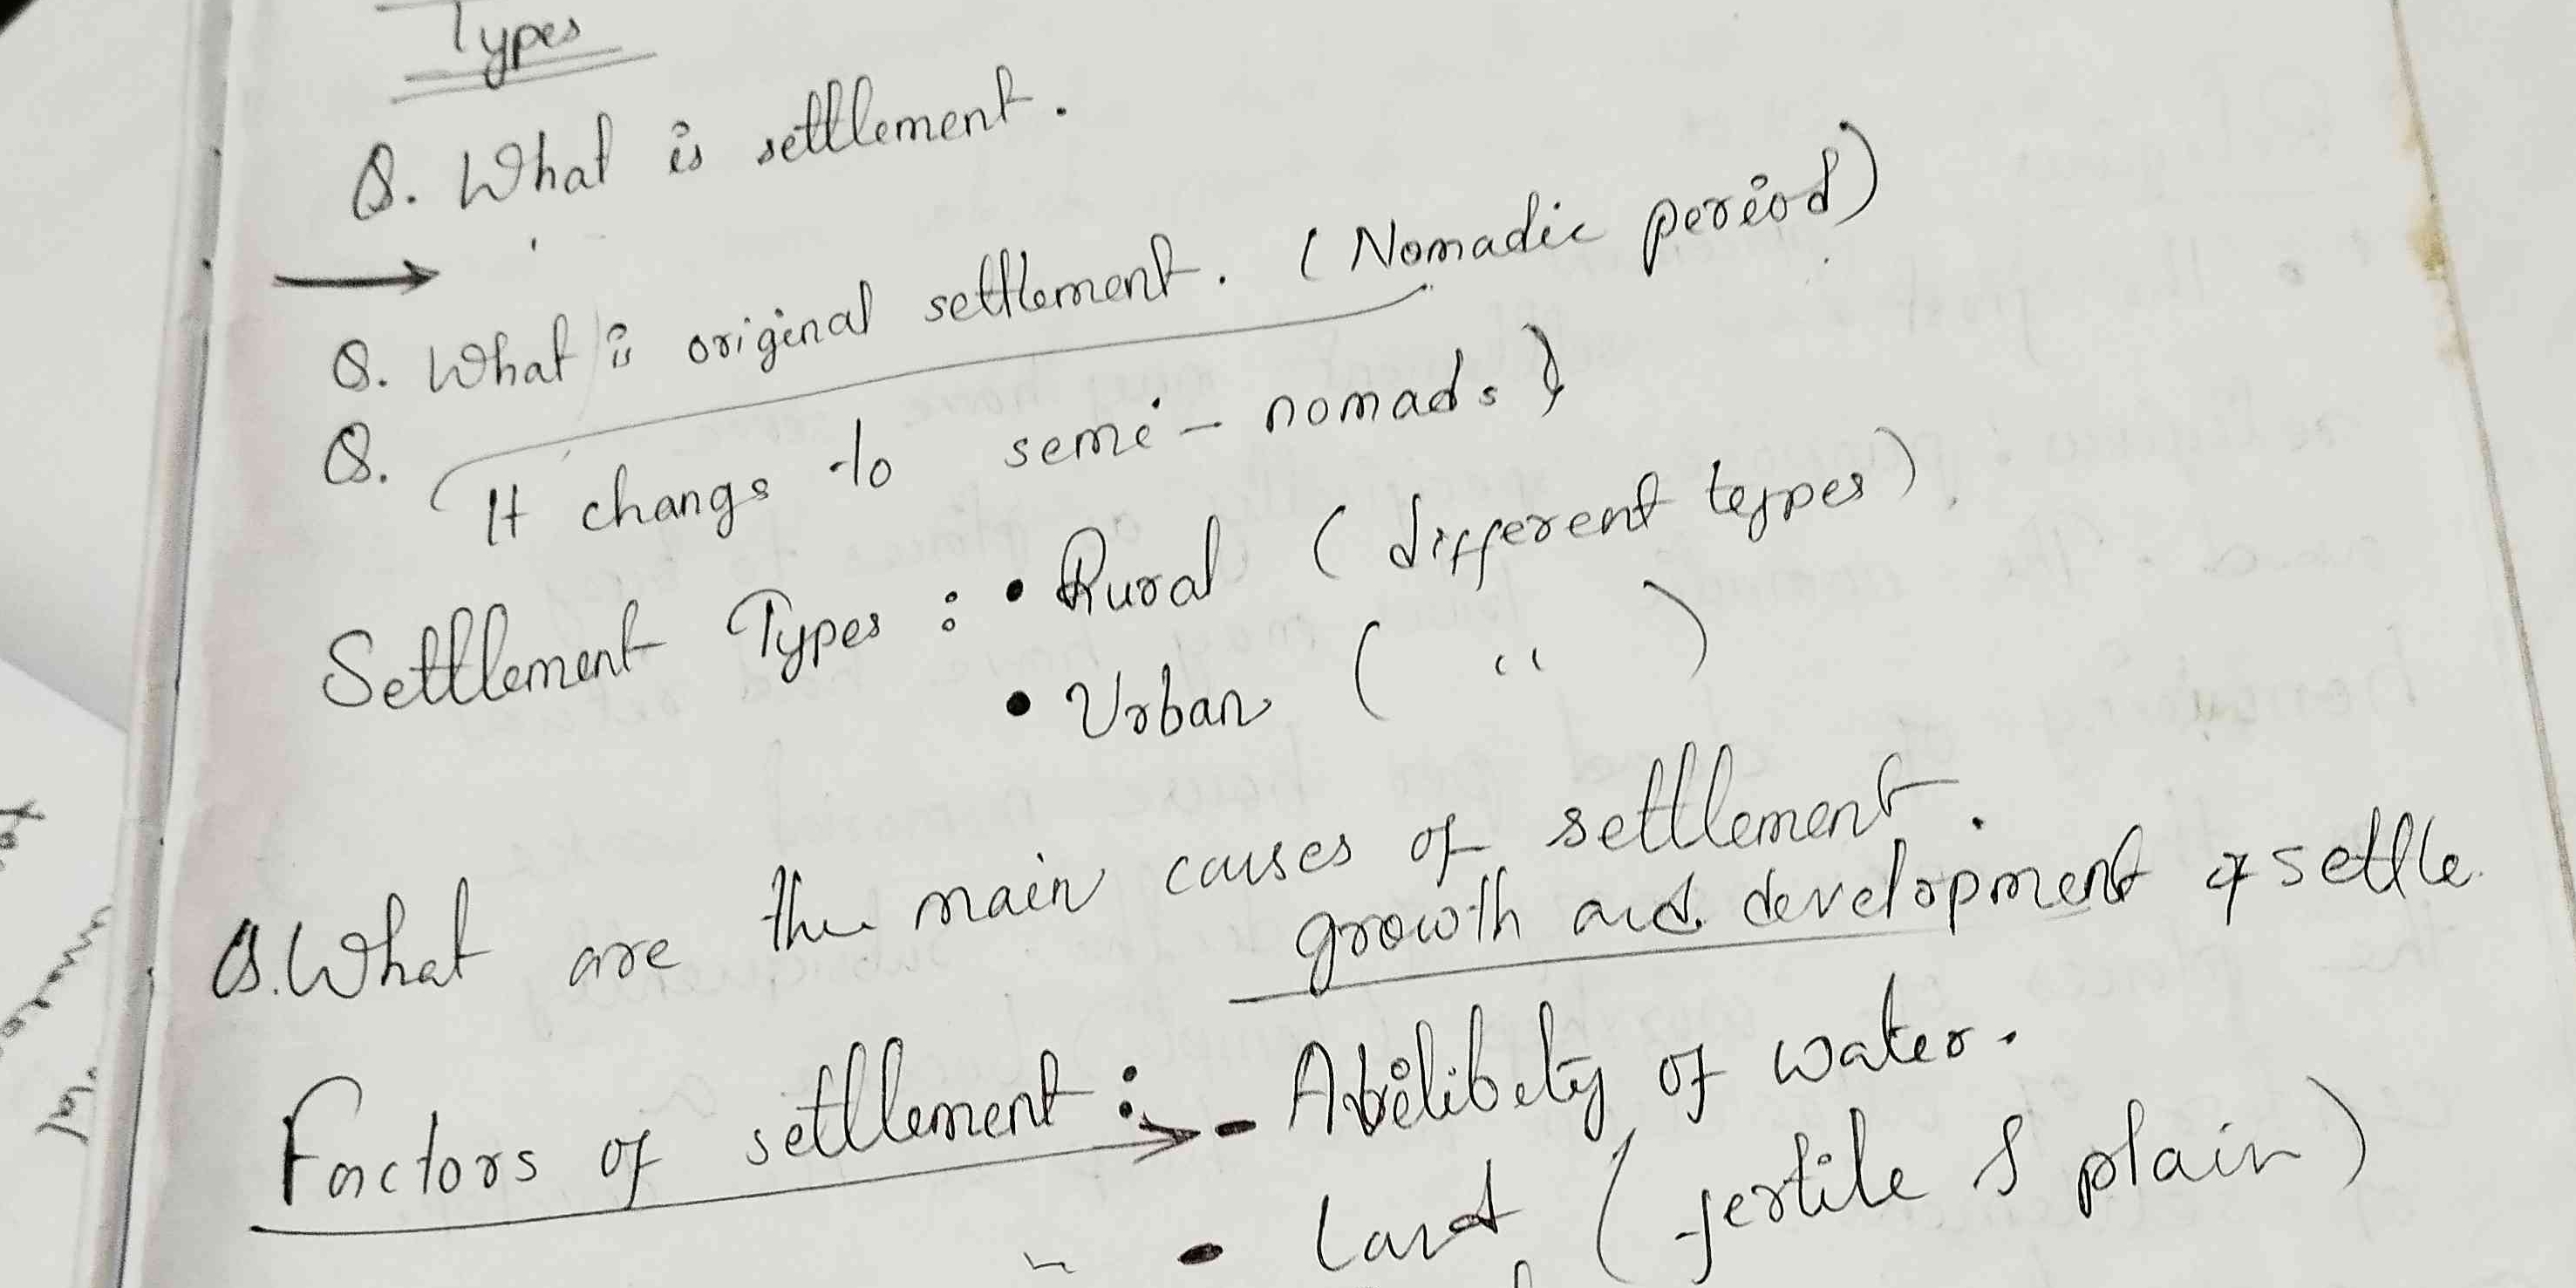 Types
Q. What is settlement.
→
Q. What is original settlement. (Nomadic period)
Q.
It changs to semi-nomads)
Settlement Types : • Rural (different types).
• Urban ( " )
Q. What are the main causes of settlement.
growth and development of settle.
Factors of settlement : → - Abilibity of water.
- Land (fertile & plain)